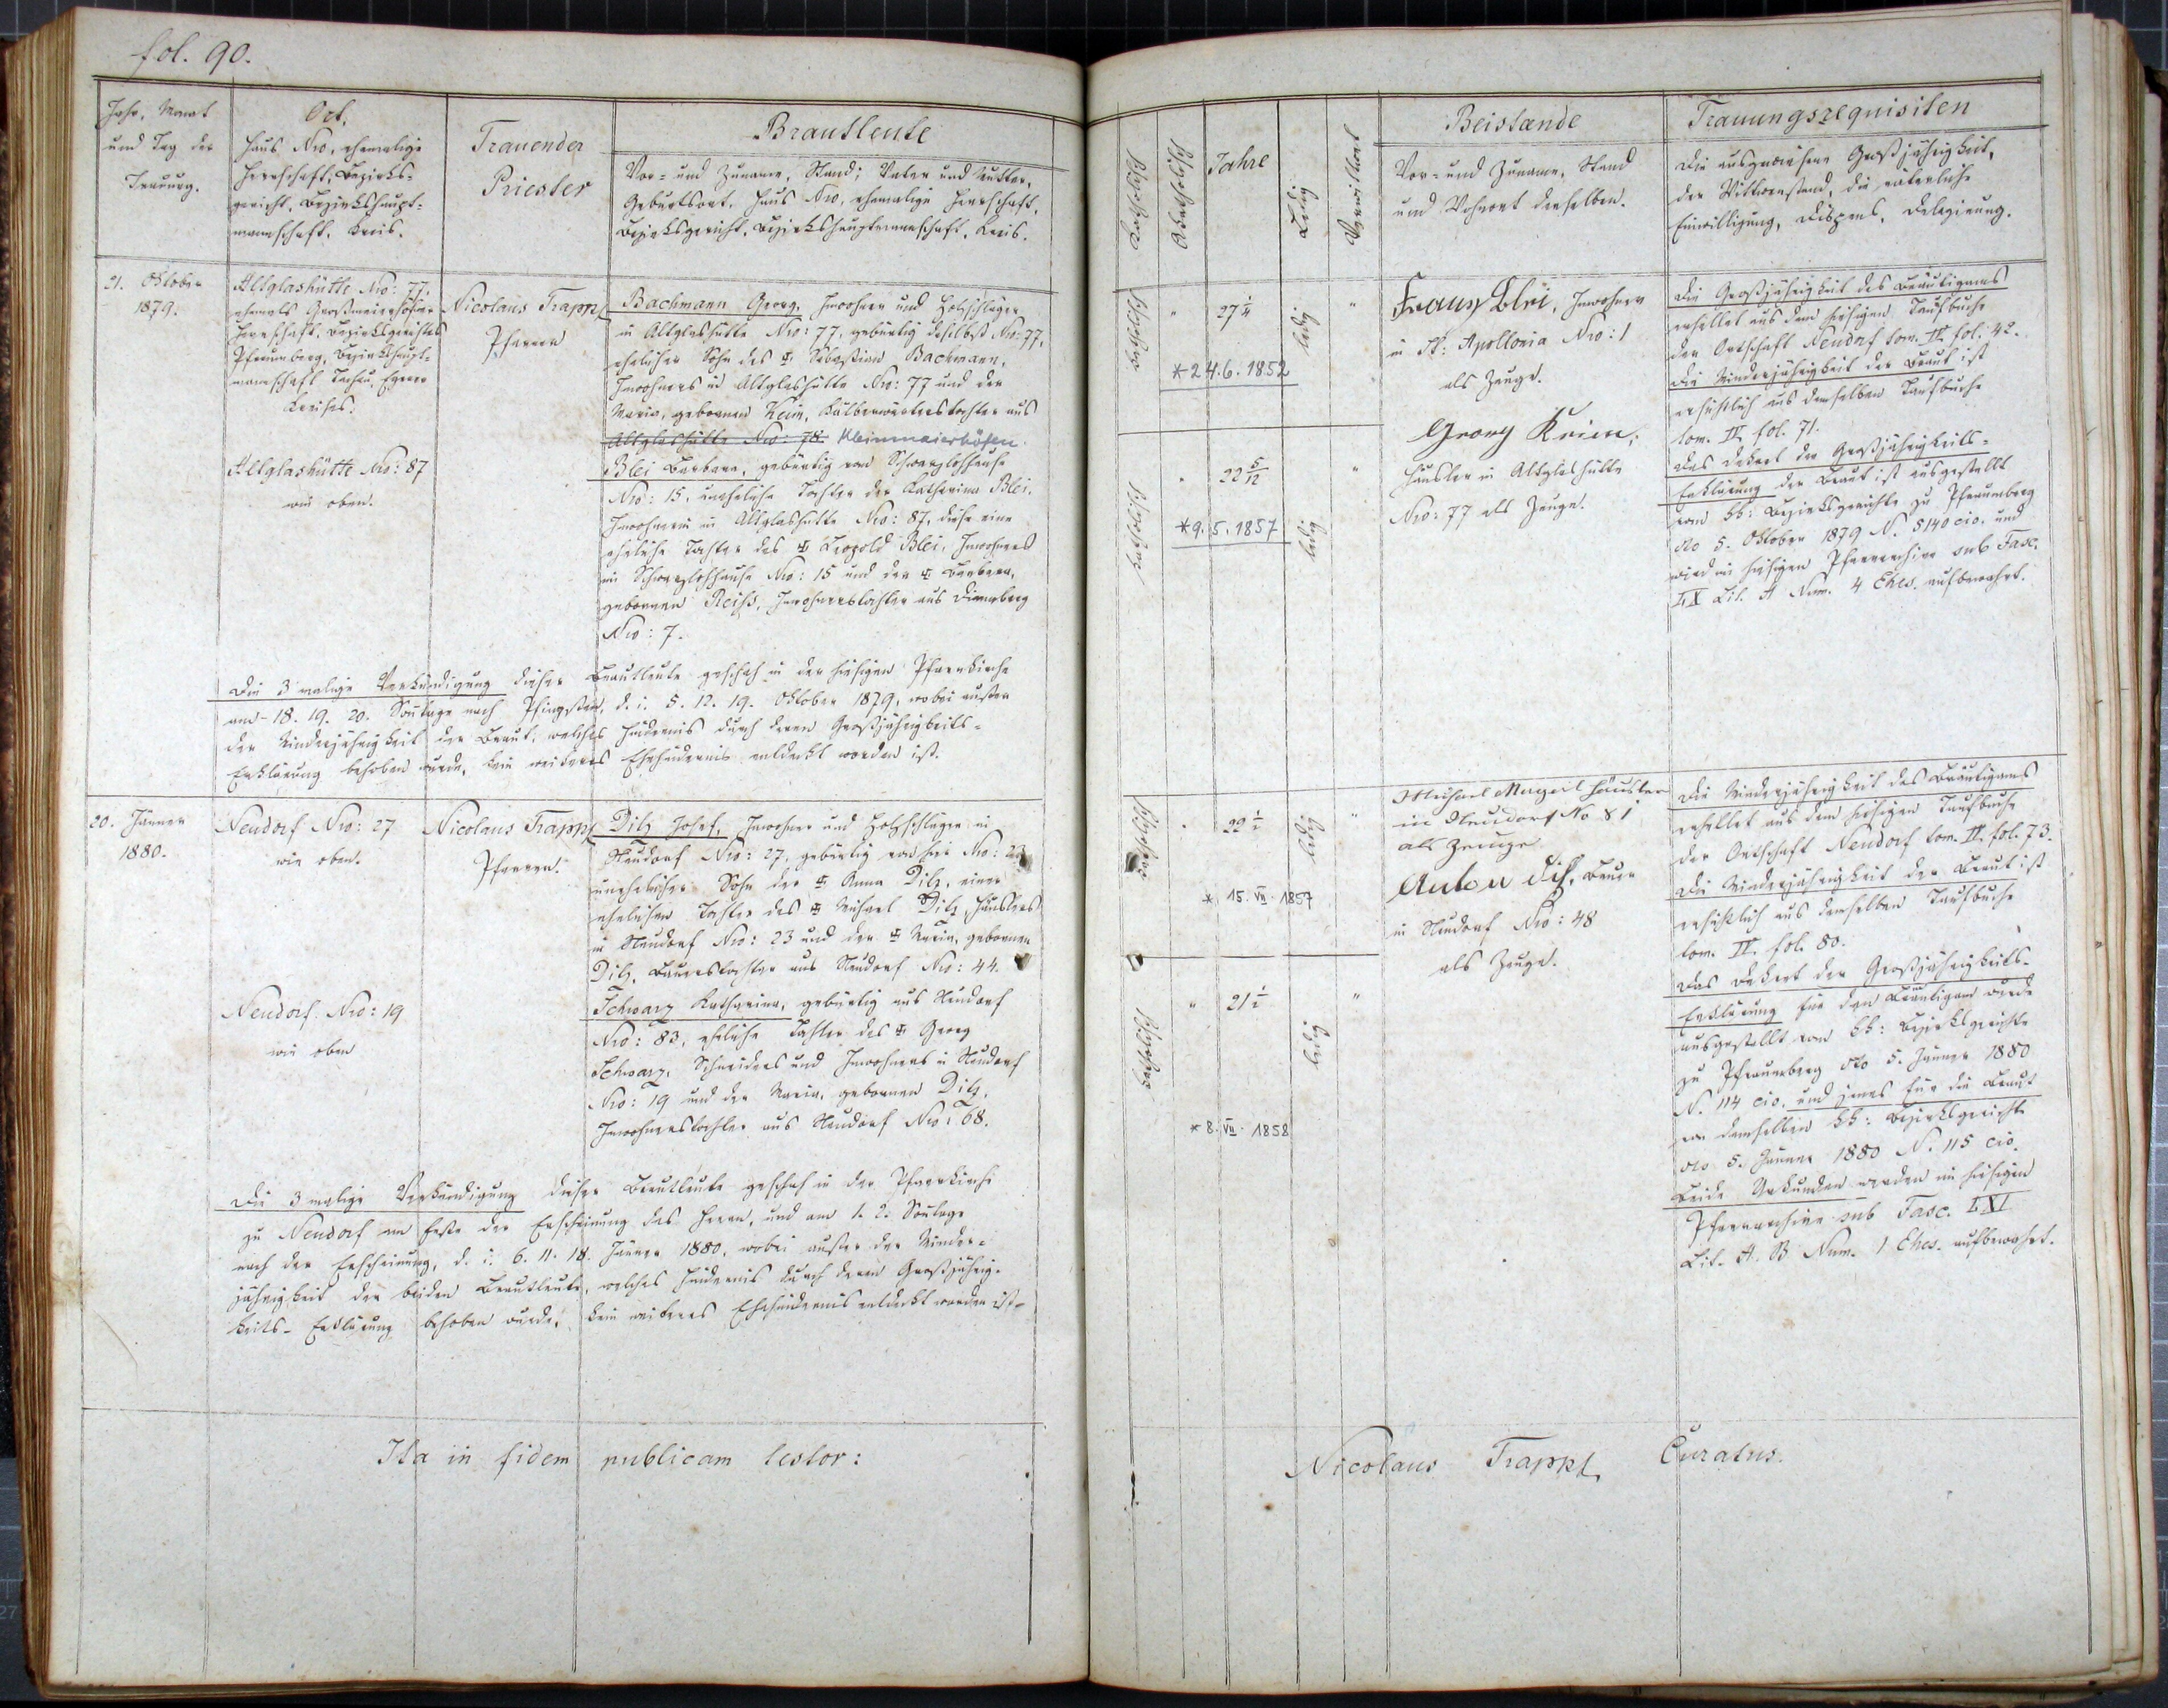 fol. 90.
Jahr, Monat
und Tag der
Trauung.
Ort,
Haus Nro, ehemalige
Herrschaft, Bezirks-
gericht, Bezirkshaupt-
mannschaft, Kreis.
Trauender
Priester
Brautleute
Vor- und Zuname, Stand; Vater und Mutter,
Geburtsort, Haus Nro, ehemalige Herrschaft,
Bezirksgericht, Bezirkshauptmannschaft, Kreis.
21. Oktober
1879.
Altglashütte Nro: 77.
ehemals Großmeierhöfner
Herrschaft, Bezirksgerichtes
Pfraumberg, Bezirkshaupt-
mannschaft Tachau, Egerer
Kreises.
Altglashütte Nro: 87
wie oben.
Nicolaus Trappl
Pfarrer
Bachmann Georg, Inwohner und Holzschläger
in Altglashütte Nro: 77, gebürtig daselbst Nro: 77,
ehelicher Sohn des ✠ Sebastian Bachmann,
Inwohners in Altglashütte Nro: 77 und der
Maria, gebornen Keim, aus
Altglashütte Nro: 78. Kleinmaierhöfen.
Blei Barbara, gebürtig von Schwarzlohhause
Nro: 15, uneheliche Tochter der Katharina Blei,
Inwohnerin in Altglashütte Nro: 87, diese eine
eheliche Tochter des ✠ Leopold Blei, Inwohners
in Schwarzlohhause Nro: 15 und der ✠ Barbara,
gebornen Reiß, Inwohnerstochter aus Dianaberg
Nro: 7.
Die 3 malige Verkündigung dieser Brautleute geschah in der hiesigen Pfarrkirche
am 18. 19. 20. Sontage nach Pfingsten, d. i. 5. 12. 19. Oktober 1879, wobei außer
der Minderjährigkeit der Braut, welches Hindernis durch deren Großjährigkeits-
Erklärung behoben wurde, kein weiteres Ehehindernis entdeckt worden ist.
20. Jänner
1880.
Neudorf Nro: 27
wie oben.
Neudorf. Nro: 19
wie oben
Nicolaus Trappl
Pfarrer.
Dilz Josef, Inwohner und Holzschläger in
Neudorf Nro: 27, gebürtig von hie Nro: 23
unehelicher Sohn der ✠ Anna Dilz, einer
ehelichen Tochter des ✠ Michael Dilz, Häuslers
in Neudorf Nro: 23 und der ✠ Maria, gebornen
Dilz, Bauerstochter aus Neudorf Nro: 44.
Schwarz Katharina, gebürtig aus Neudorf
Nro: 83, eheliche Tochter des ✠ Georg
Schwarz, Schneiders und Inwohners in Neudorf
Nro: 19 und der Maria, gebornen Dilz,
Inwohnerstochter aus Neudorf Nro: 68.
Die 3 malige Verkündigung dieser Brautleute geschah in der Pfarrkirche
zu Neudorf am Feste der Erscheinung des Herrn, und am 1. 2. Sontage
nach der Erscheinung, d. i. 6. 11. 18. Jänner 1880, wobei außer der Minder-
jährigkeit der beiden Brautleute, welches Hindernis durch deren Großjährig-
keits-Erklärung behoben wurde, kein weiteres Ehehindernis entdeckt worden ist.
Ita in fidem publicam testor:
Katholisch
Akatholisch
Jahre
Ledig
Verwittwet
Beistande
Vor- und Zuname, Stand
und Wohnort derselben.
Trauungsrequisiten
Die ausgewiesene Großjährigkeit,
der Wittwenstand, die väterliche
Einwilligung, Dispens, Delegirung.
katholisch
"
27 1/4
ledig
"
* 24.6.1852
katholisch
"
22 5/12
ledig
"
* 9.5.1857
Franz Blei, Inwohner
in St: Apollonia Nro: 1
als Zeuge.
Georg Keim,
Häusler in Altglashütte
Nro: 77 als Zeuge.
Die Großjährigkeit des Bräutigams
erhellet aus dem hiesigen Taufbuche
der Ortschaft Neudorf tom. II. fol. 42.
Die Minderjährigkeit der Braut ist
ersichtlich aus demselben Taufbuche
tom. IV. fol. 71.
Das Dekret der Großjährigkeits-
Erklärung der Braut ist ausgestellt
vom kk: Bezirksgerichte zu Pfraumberg
dto 5. Oktober 1879 N. 5140 civ. und
wird im hiesigen Pfarrarchive sub Fasc.
LX Lit. A Num. 4 Ehes. aufbewahrt.
katholisch
22 1/2
ledig
"
* 15. VII. 1857
katholisch
"
21 1/2
ledig
"
* 8. VII. 1858
Michael Häusler
in Neudorf No 81
als Zeuge
Anton Dilz, Bauer
in Neudorf Nro: 48
als Zeuge.
Die Minderjährigkeit des Bräutigams
erhellet aus dem hiesigen Taufbuche
der Ortschaft Neudorf tom. IV. fol. 73.
Die Minderjährigkeit der Braut ist
ersichtlich aus demselben Taufbuche
tom. IV. fol. 80.
Das Dekret der Großjährigkeits-
Erklärung für den Bräutigam wurde
ausgestellt vom kk: Bezirksgerichte
zu Pfraumberg dto 5. Jänner 1880
N. 114 civ. und jenes für die Braut
von demselben kk: Bezirksgerichte
dto 5. Jänner 1880 N. 115 civ.
Beide Urkunden werden im hiesigen
Pfarrarchive sub Fasc. LXI
Lit. A. B Num. 1 Ehes. aufbewahrt.
Nicolaus Trappl, Curatus.